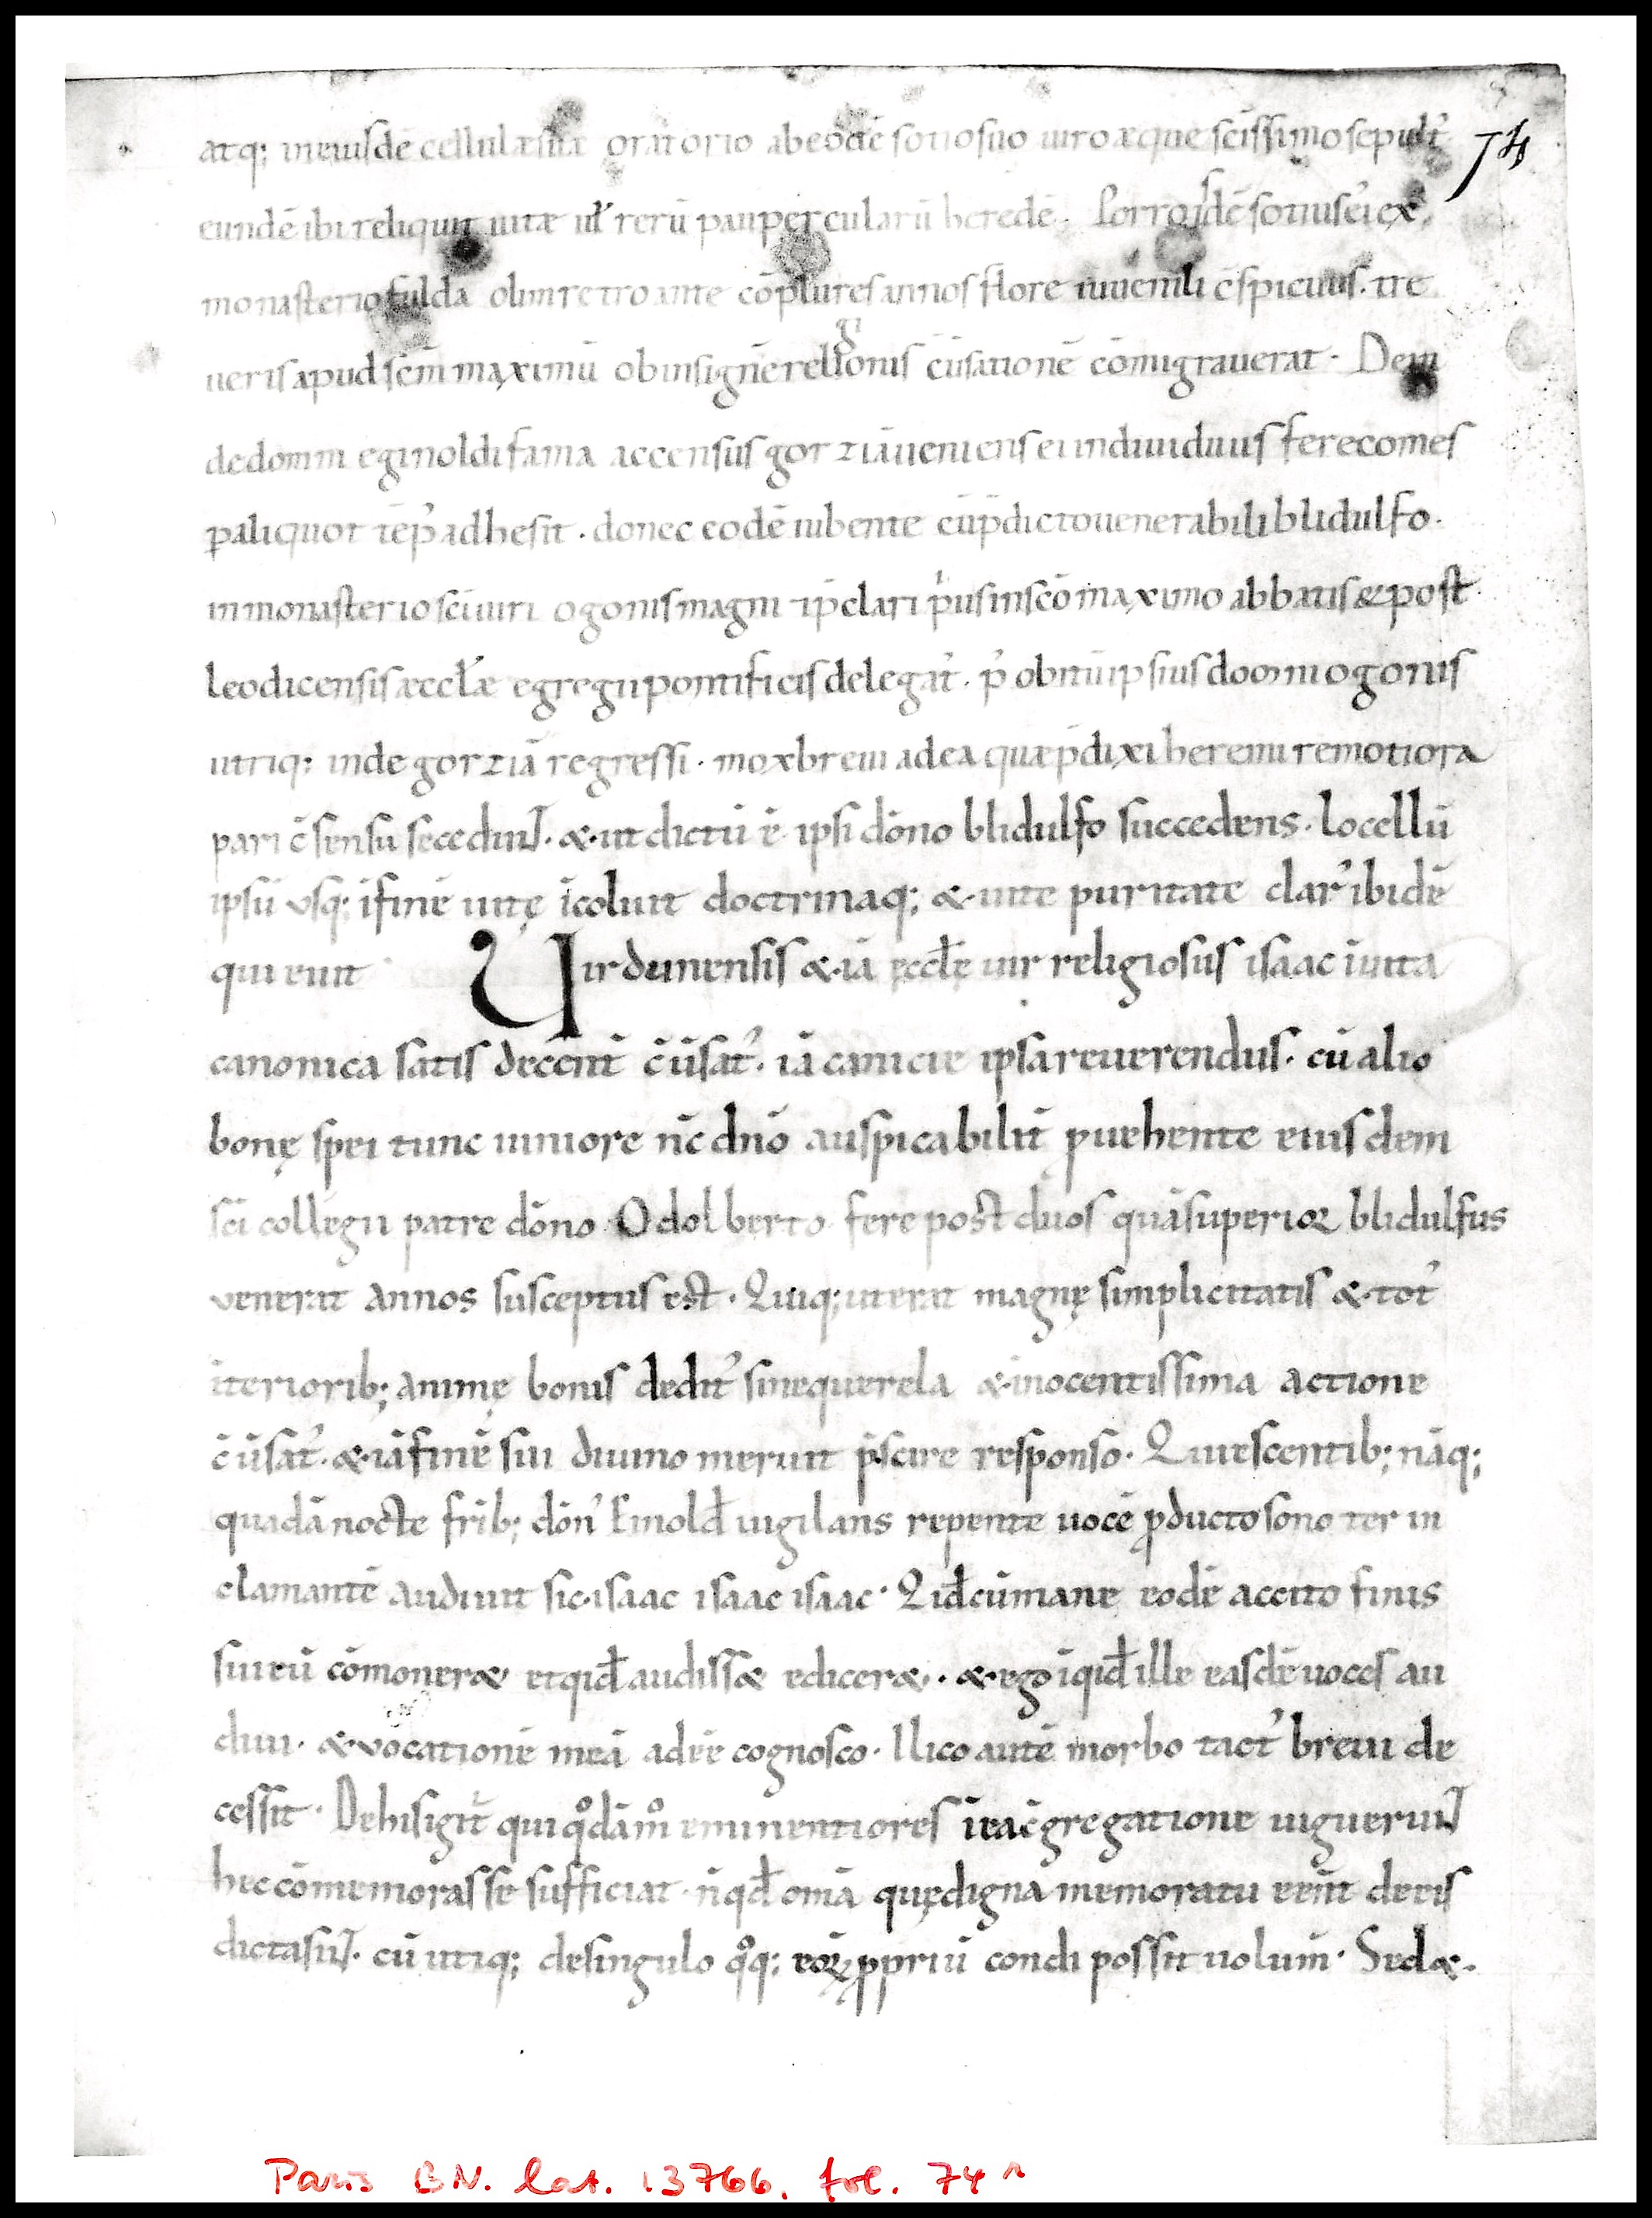 74
atq; in eiusdē cellulæ suæ oratorio ab eodē sotio suo uiro æque scīssimo sepult᾽
eundē ibi reliquit uitæ ul̄ rerū paupercularū heredē. Porro idē sotius ei᾽ ex
monasterio fulda olim retro ante cōplures annos flore iuuenili c̄spicuus. tre
ueris apud scm̄ maximū ob insignē religionis c̄uersationē cōmigrauerat. Dein
de domni eginoldi fama accensus gorziā ueniens ei indiuiduus fere comes
ꝑ aliquot tēp᾽ adhesit. donec eodē iubente cū p̄dicto uenerabili blidulfo.
in monasterio scī uiri ogonis magni ⁊ p̄clari prius in scō maximo abbatis & post
leodicensis æccl̄æ egregii pontificis delegat᾽. p᾽ obitū ipsius domni ogonis
utriq; inde gorziā regressi. mox breui ad ea quæ p̄dixi heremi remotiora
pari c̄sensu secedunt. & ut dictū ē ipsi dōno blidulfo succedens. locellū
ipsū usq; ī finē uitę īcoluit doctrinaq; & uite puritate clar᾽ ibidē
quieuit Uirdunensis & iā ęccl̄ę uir religiosus isaac ī uita
canonica satis decent̄ c̄ūsat᾽. iā canicie ipsa reuerendus. cū alio
bonę spei tunc iuniore nc̄ dn̄o auspicabilit̄ ꝓuehente eiusdem
scī collegii patre dōno Odolberto fere post duos quā superior blidulfus
venerat annos susceptus est. Quiq; ut erat magnę simplicitatis & tot᾽
īteriorib; animę bonis dedit᾽ sine querela & inocentissima actione
c̄ūsat᾽. & iā finē sui diuino meruit p̄scire responso. Quiescentib; nāq;
quadā nocte frīb; dōn᾽ Einold̄ uigilans repente uocē ꝓducto sono ter in
clamantē audiuit sic. isaac isaac isaac. Qid̄ cū mane eodē accito finis
sui eū cōmoneret et qid̄ audisset ediceret. & ego īqid̄ ille easdē uoces au
diui. & vocationē meā adeē cognosco. Ilico autē morbo tact᾽ breui de
cessit. De his igit᾽ qui qodā mo eminentiores ī ea c̄gregatione uiguerunt
hec cōmemorasse sufficiat. n̄ qd̄ omā quę digna memoratu eēnt de eis
dicta sunt. cū utiq; de singulo qoq; eoꝝ ꝓpriū condi possit uolum̄. Sed &
Paris BN. lat. 13766. fol. 74r